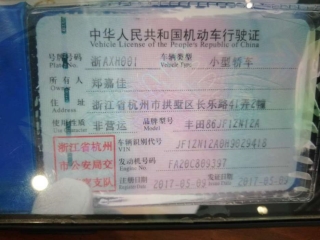 中华人民共和国机动车行驶证
Vehicle License of the People's Republic of China
号牌号码 浙AXH001 车辆类型 小型轿车
Plate No. Vehicle Type
所有人 郑嘉佳
Owner
浙江省杭州市拱墅区长乐路41弄2幢
使用性质 非营运 品牌型号 丰田86JF1ZN1ZA
浙江省杭州 车辆识别代号
VIN
市公安局交
发动机号码 FA20C809397
Engine No.
支队 注册日期 2017-05-09 发证日期 2017-05-09
Register Date Issue Date